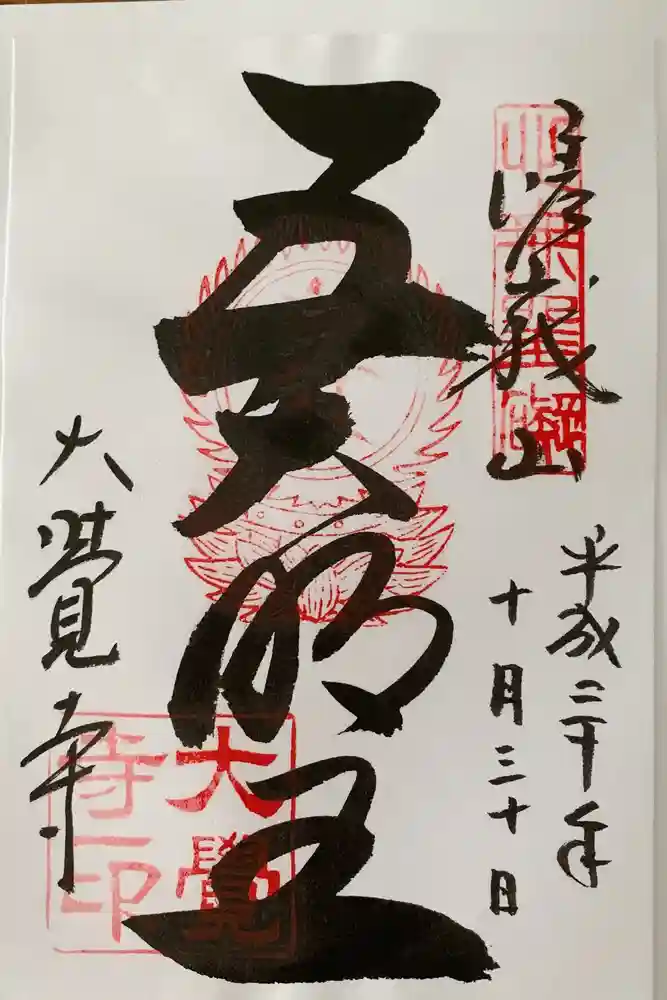 嵯峨山
平成二十年
十月三十日
五大明王
大覺寺
大覺
寺印